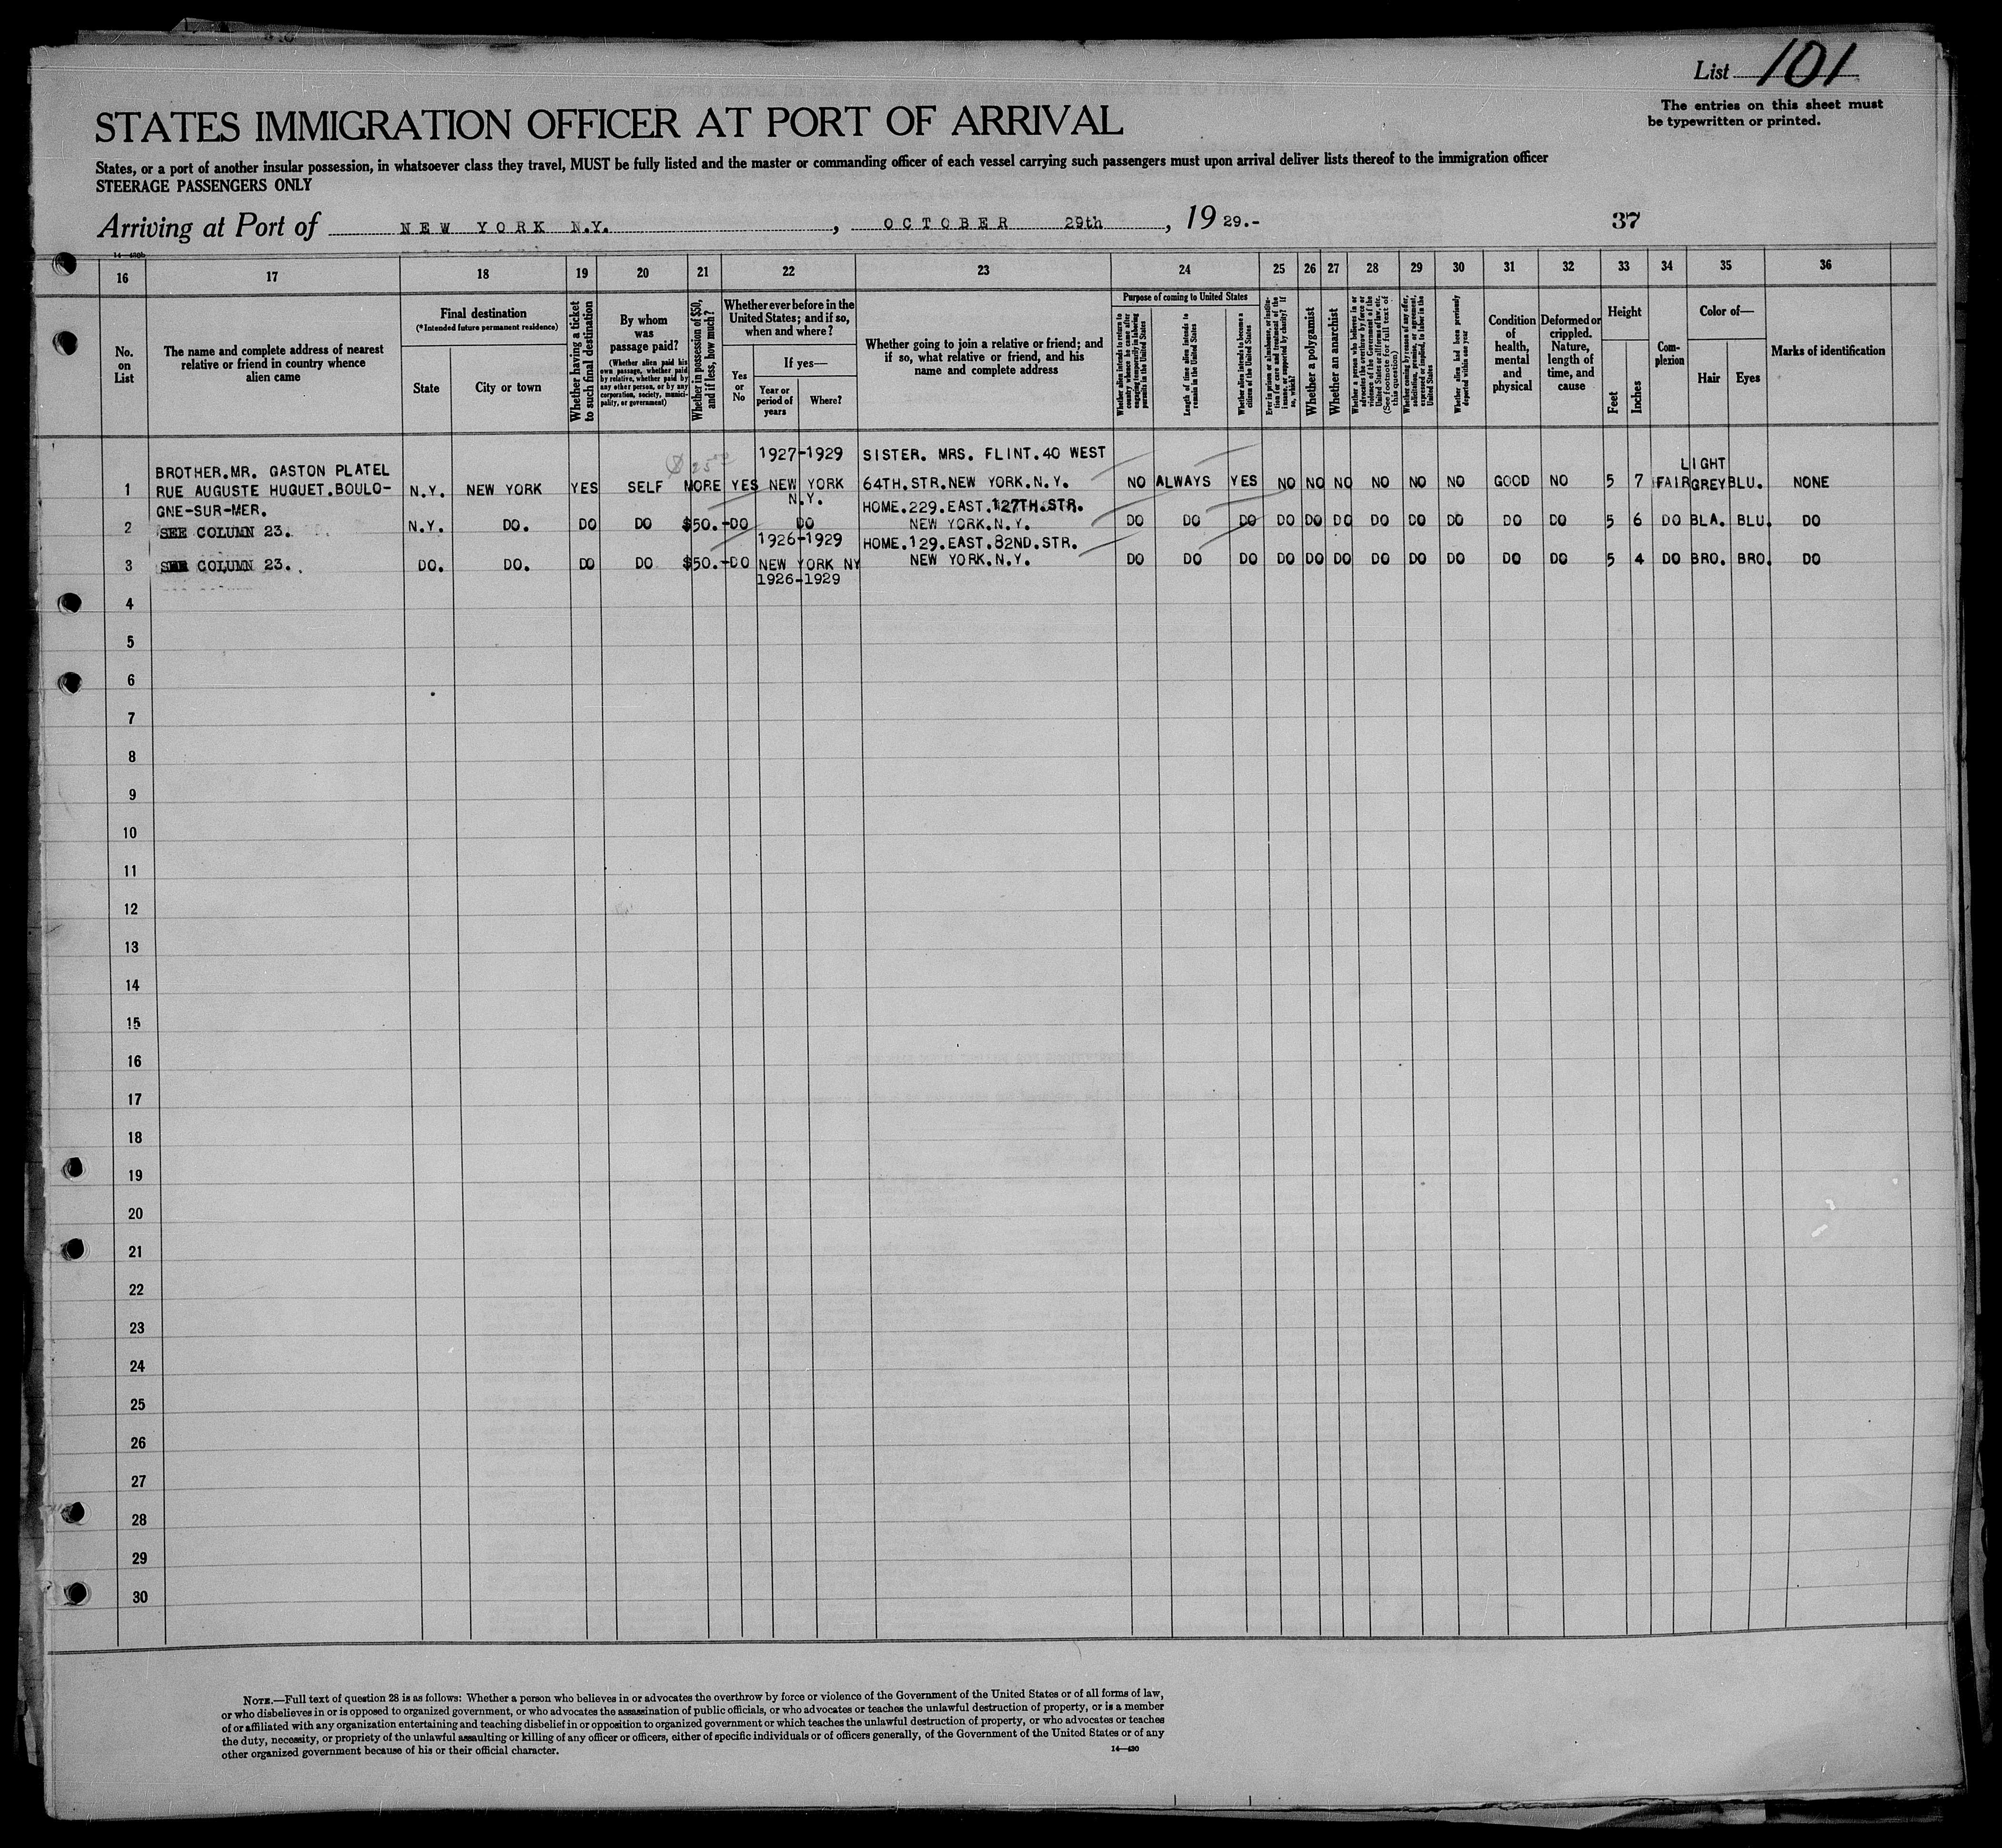 List 101
The entries on this sheet must
be typewritten or printed.
STATES IMMIGRATION OFFICER AT PORT OF ARRIVAL
States, or a port of another insular possession, in whatsoever class they travel, MUST be fully listed and the master or commanding officer of each vessel carrying such passengers must upon arrival deliver lists thereof to the immigration officer
STEERAGE PASSENGERS ONLY
Arriving at Port of NEW YORK N.Y. , OCTOBER 29th , 19 29.-
37
14—430b
16 17 18 19 20 21 22 23 24 25 26 27 28 29 30 31 32 33 34 35 36
No. on List
The name and complete address of nearest relative or friend in country whence alien came
Final destination
(*Intended future permanent residence)
State
City or town
Whether having a ticket to such final destination
By whom was passage paid?
(Whether alien paid his own passage, whether paid by relative, whether paid by any other person, or by any corporation, society, municipality, or government)
Whether in possession of $50, and if less, how much?
Whether ever before in the United States; and if so, when and where?
Yes or No
If yes—
Year or period of years
Where?
Whether going to join a relative or friend; and if so, what relative or friend, and his name and complete address
Purpose of coming to United States
Whether alien intends to return to country whence he came after engaging temporarily in laboring pursuits in the United States
Length of time alien intends to remain in the United States
Whether alien intends to become a citizen of the United States
Ever in prison or almshouse, or institution for care and treatment of the insane, or supported by charity? If so, which?
Whether a polygamist
Whether an anarchist
Whether a person who believes in or advocates the overthrow by force or violence of the Government of the United States or all forms of law, etc. (See footnote for full text of this question)
Whether coming by reason of any offer, solicitation, promise, or agreement, expressed or implied, to labor in the United States
Whether alien had been previously deported within one year
Condition of health, mental and physical
Deformed or crippled. Nature, length of time, and cause
Height
Feet
Inches
Com-plexion
Color of—
Hair
Eyes
Marks of identification
1927-1929 SISTER. MRS. FLINT.40 WEST
BROTHER.MR. GASTON PLATEL LIGHT
1 RUE AUGUSTE HUGUET.BOULO- N.Y. NEW YORK YES SELF MORE YES NEW YORK 64TH.STR.NEW YORK.N.Y. NO ALWAYS YES NO NO NO NO NO NO GOOD NO 5 7 FAIR GREY BLU. NONE
GNE-SUR-MER. N.Y. HOME.229.EAST.127TH.STR.
2 SEE COLUMN 23. N.Y. DO. DO DO $50.- DO DO NEW YORK.N.Y. DO DO DO DO DO DO DO DO DO DO DO 5 6 DO BLA. BLU. DO
1926-1929 HOME.129.EAST.82ND.STR.
3 SEE COLUMN 23. DO. DO. DO DO $50.- DO NEW YORK NY NEW YORK.N.Y. DO DO DO DO DO DO DO DO DO DO DO 5 4 DO BRO. BRO. DO
1926-1929
4
5
6
7
8
9
10
11
12
13
14
15
16
17
18
19
20
21
22
23
24
25
26
27
28
29
30
NOTE.—Full text of question 28 is as follows: Whether a person who believes in or advocates the overthrow by force or violence of the Government of the United States or of all forms of law,
or who disbelieves in or is opposed to organized government, or who advocates the assassination of public officials, or who advocates or teaches the unlawful destruction of property, or is a member
of or affiliated with any organization entertaining and teaching disbelief in or opposition to organized government or which teaches the unlawful destruction of property, or who advocates or teaches
the duty, necessity, or propriety of the unlawful assaulting or killing of any officer or officers, either of specific individuals or of officers generally, of the Government of the United States or of any
other organized government because of his or their official character.
14—430